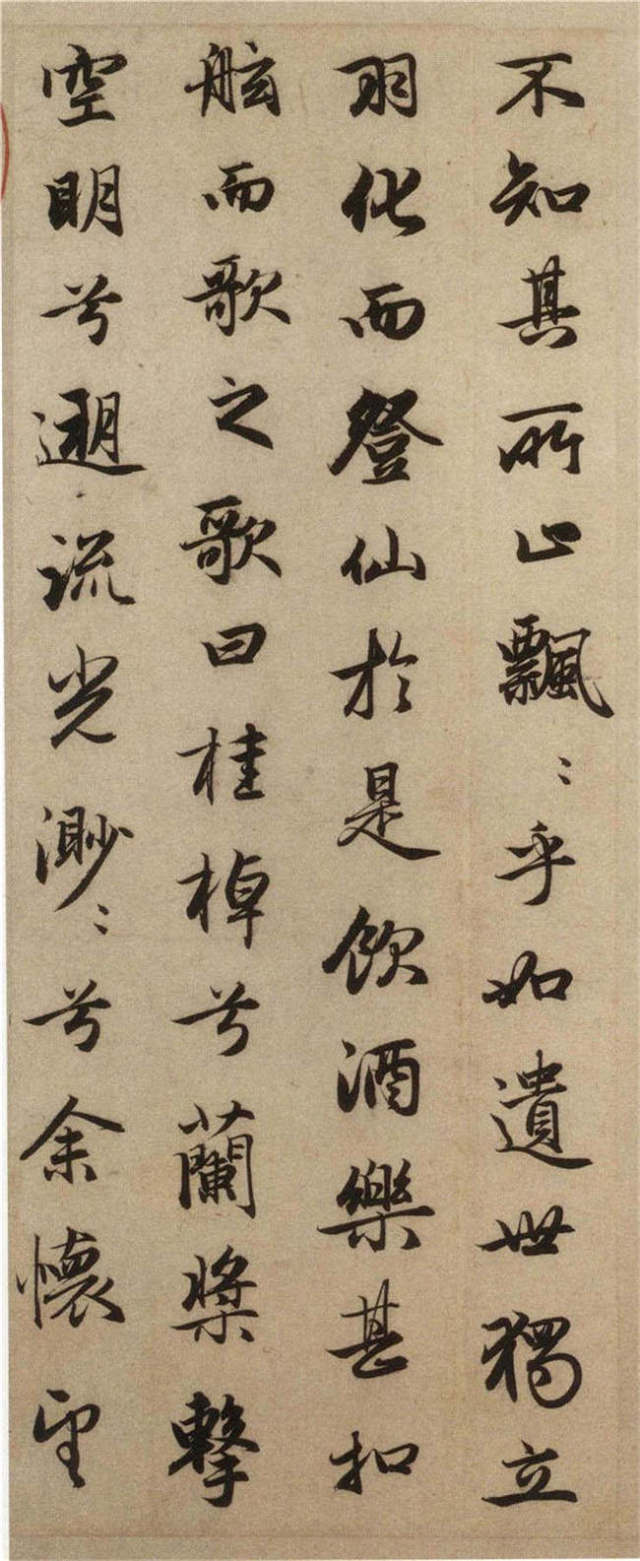 不知其所止飄〻乎如遺世獨立
羽化而登仙於是飲酒樂甚扣
舷而歌之歌曰桂棹兮蘭槳擊
空明兮遡流光渺〻兮余懷望